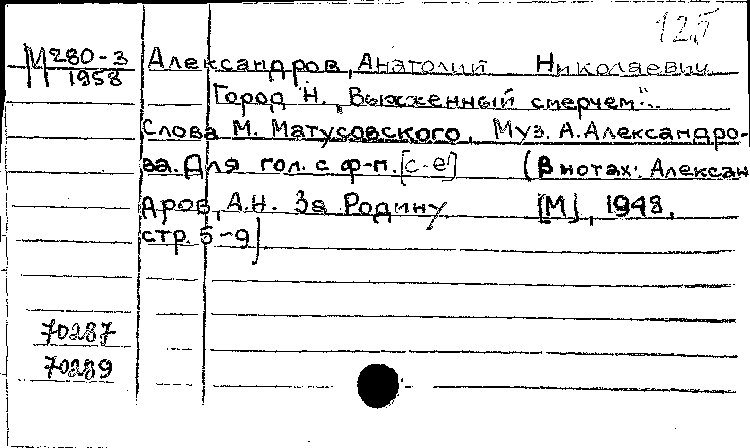 125
М 280-3
1958
Александров, Анатолий Николаевич
Город Н. „Выжженный смерчем"..
Слова М. Матусовского. Муз. А. Александро-
ва. Для гол. с ф-п. [с-е] (В нотах: Алексан
дров, А.Н. За Родину [М], 1948,
стр. 5-9)
70287
70289